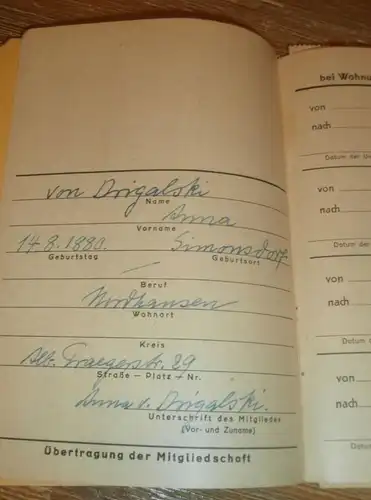 von Drigalski
Name
Anna
Vorname
14.8.1880. Simonsdorf
Geburtstag Geburtsort
—
Beruf
Nordhausen
Wohnort
Kreis
Alb. Traegerstr. 29
Straße – Platz – Nr.
Anna v. Drigalski.
Unterschrift des Mitgliedes
(Vor- und Zuname)
Übertragung der Mitgliedschaft
bei Wohnu
von
nach
Datum der Ü
von
nach
Datum der
von
nach
Datum d
von
nach
Datu